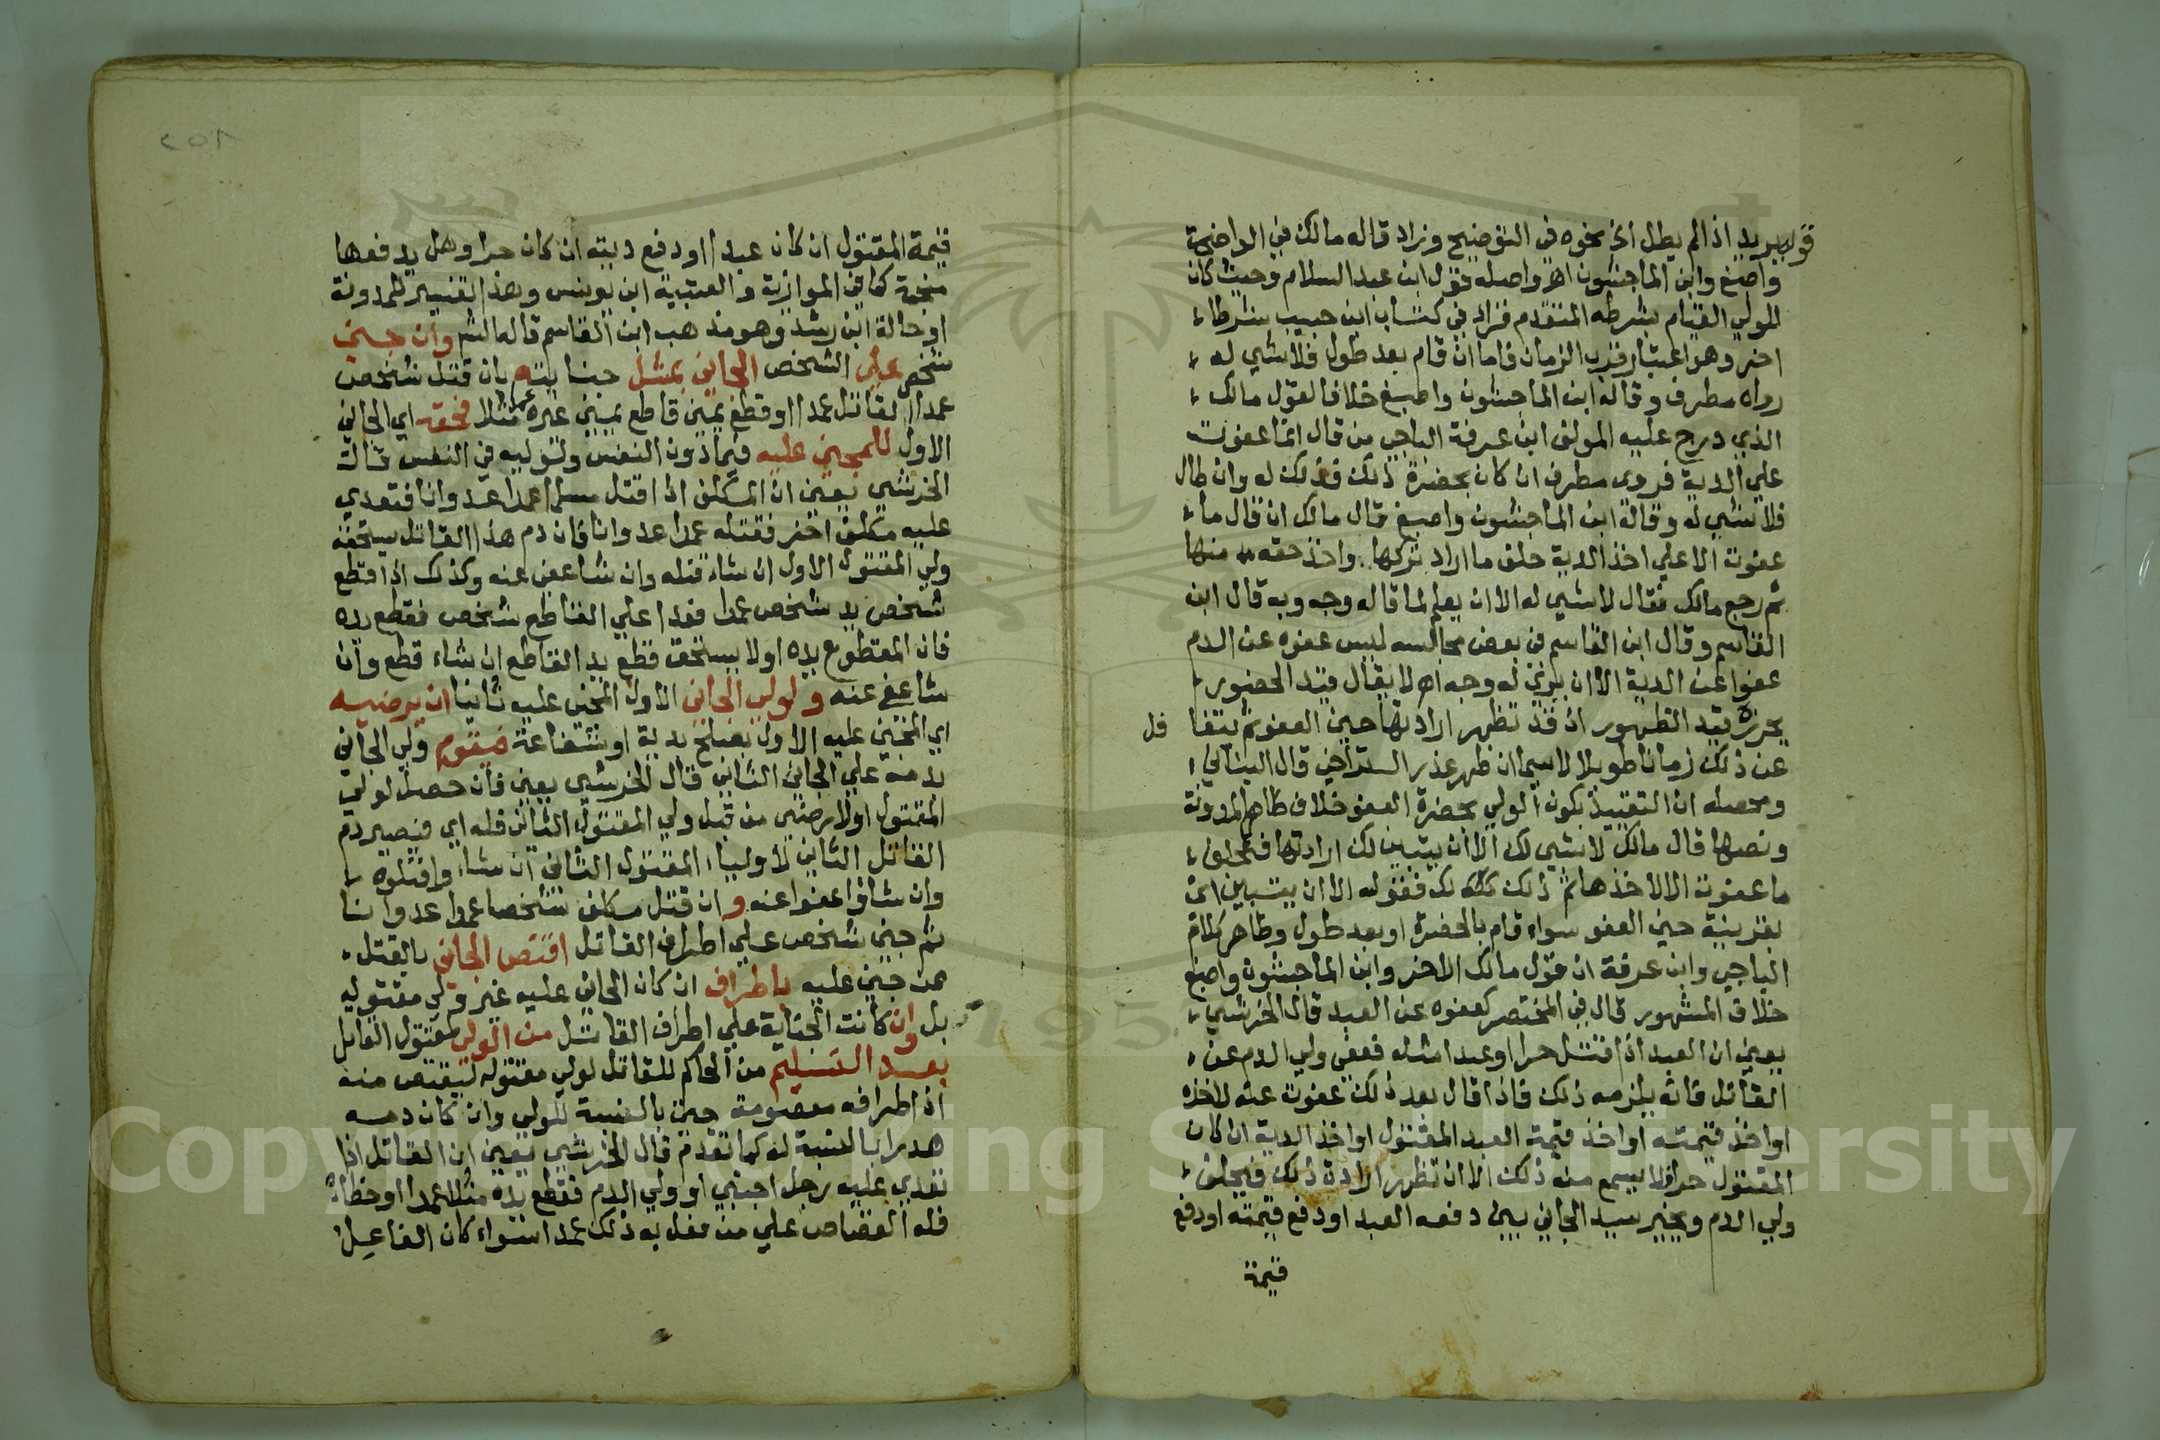 قوله يريد اذا لم يطل اي نحوه في التوضيح وزاد قاله مالك في الواضحة
واصبغ وابن الماجشون اهـ واصله قول ابن عبد السلام وحيث كان
للولي القيام بشرطه المتقدم فزاد في كتاب ابن حبيب شرطا
اخر وهو اعتبار قرب الزمان فاما ان قام بعد طول فلا شي له
رواه مطرف وقاله ابن الماجشون واصبغ خلافا لقول مالك
الذي درج عليه المولف ابن عرفة الباجي من قال انما عفوت
علي الدية فروي مطرف ان كان بحضرة ذلك فذلك له وان طال
فلا شي له وقاله ابن الماجشون واصبغ قال مالك ان قال ما
عفوت الا علي اخذ الدية حلف ما اراد تركها واخذ حقه منها
ثم رجع مالك فقال لا شي له الا ان يعلم لما قاله وجه وبه قال ابن
القاسم وقال ابن القاسم في بعض مجالسه ليس عفوه عن الدم
عفوا عن الدية الا ان يري له وجه اهـ لا يقال قيد الحضور
يحرزه قيد الظهور اذ قد تظهر ارادتها حين العفو ثم يتغا
فل
عن ذلك زمانا طويلا لاسيما ان ظهر عذر التراخي قال البناني
ومحصله ان التقييد بكون الولي بحضرة العفو خلاف ظاهر المدونة
ونصها قال مالك لا شي لك الا ان يتبين لك ارادتها فتحلف
ما عفوت الا لاخذها ثم ذلك لك فقوله الا ان يتبين اي
بقرينة حين العفو سواء قام بالحضرة او بعد طول وظاهر كلام
الباجي وابن عرفة ان قول مالك الاخر وابن الماجشون واصبغ
خلاف المشهور قال في المختصر كعفوه عن العبد قال الخرشي
يعني ان العبد اذا قتل حرا او عبدا مثله فعفي ولي الدم عن
القاتل فانه يلزمه ذلك فاذا قال بعد ذلك عفوت عنه لاخذه
او اخذ قيمته او اخذ قيمة العبد المقتول او اخذ الدية ان كان
المقتول حرا فلا يسمع منه ذلك الا ان تظهر ارادة ذلك فيحلف
ولي الدم ويخير سيد الجاني بين دفعه العبد او دفع قيمته او دفع
قيمة
٢٥٨
قيمة المقتول ان كان عبدا او دفع ديته ان كان حرا وهل يدفعها
منجمة كما في الموازية والعتبية ابن يونس وهذا تفسير للمدونة
او حالة ابن رشد وهو مذهب ابن القاسم قاله الشر وان جني
شخص علي الشخص الجاني بمثل جنايته بان قتل شخص
عمدا القاتل عمدا او قطع يمين قاطع يمين غيره عمدا مثلا فحقه اي الجاني
الاول للمجني عليه فيما دون النفس ولوليه في النفس قال
الخرشي يعني ان المكلف اذا قتل مسلما عمدا عدوانا فتعدي
عليه مكلف اخر فقتله عمدا عدوانا فان دم هذا القاتل يستحقه
ولي المقتول الاول ان شاء قتله وان شا عفي عنه وكذلك اذا قطع
شخص يد شخص عمدا فعدا علي القاطع شخص فقطع يده
فان المقطوع يده اولا يستحق قطع يد القاطع ان شاء قطع وان
شا عفي عنه ولولي الجاني الاول المجني عليه ثانيا ان يرضيه
اي المجني عليه الاول بصلح بدية او شفاعة فيقوم ولي الجاني
بدمه علي الجاني الثاني قال الخرشي يعني فان حصل لولي
المقتول اولا رضي من قبل ولي المقتول الثاني فله اي فيصير دم
القاتل الثاني لاولياء المقتول الثاني ان شاءوا قتلوه
وان شاوا عفوا عنه وان قتل مكلف شخصا عمدا عدوانا
ثم جني شخص علي اطراف القاتل اقتص الجاني بالقتل
ممن جني عليه باطراف ان كان الجاني عليه غير ولي مقتوله
بل وان كانت الجناية علي اطراف القاتل من الولي لمقتول القاتل
بعد التسليم من الحاكم للقاتل لولي مقتوله ليقتص منه
اذ اطرافه معصومة حتي بالنسبة للولي وان كان دمه
هدرا بالنسبة له كما تقدم قال الخرشي يعني ان القاتل اذا
تعدي عليه رجل اجنبي او ولي الدم فقطع يده مثلا عمدا او خطأ
فله القصاص علي من فعل به ذلك عمدا سواء كان الفاعل
Copyright King Saud University
1957